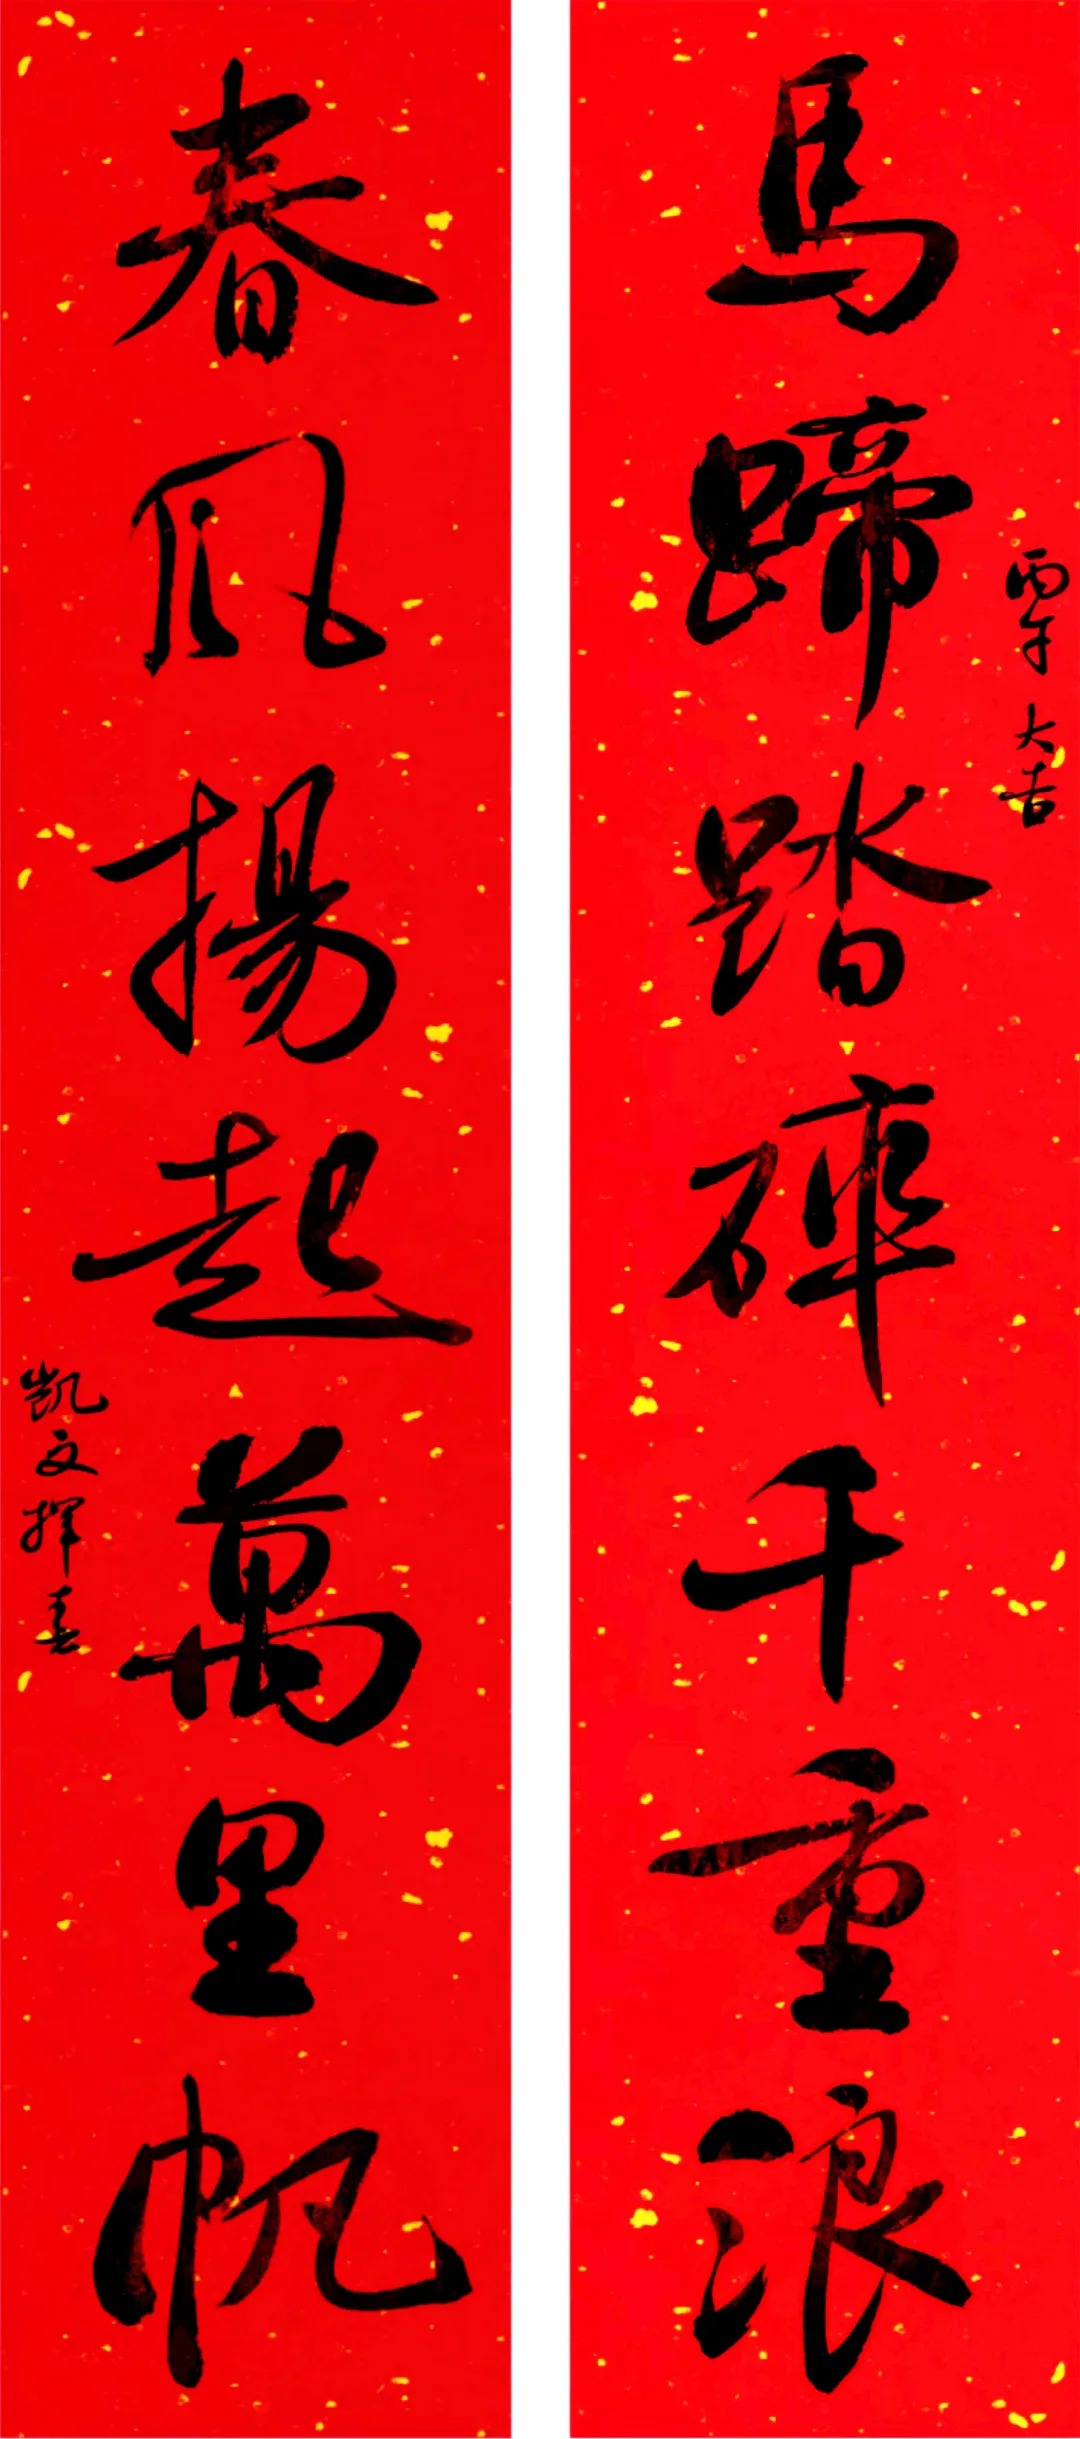 丙午大吉
馬蹄踏碎千重浪
春風揚起萬里帆
凱文揮春